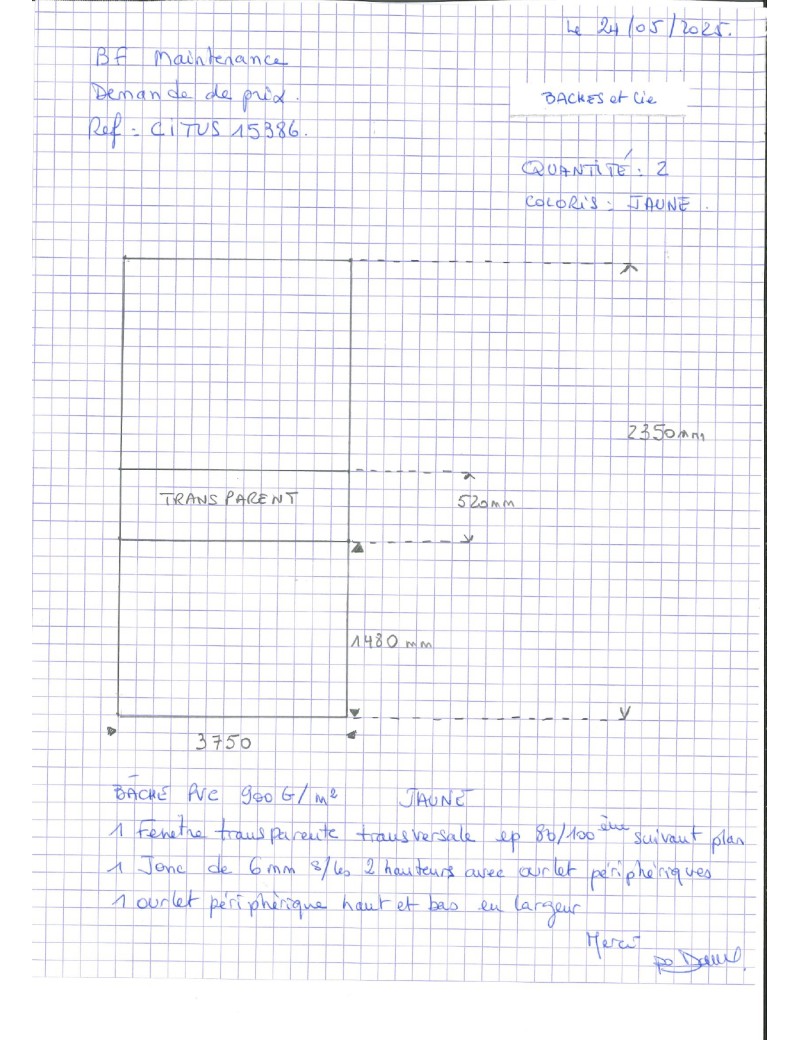 Le 24/05/2025.
BF Maintenance
Demande de prix.
BACHES et Cie
Ref : CiTUS 15386.
QUANTITÉ : 2
COLORIS : JAUNE.
2350mm
TRANSPARENT
520mm
1480 mm
3750
BÂCHE PVC 900 G/m² JAUNE
1 Fenêtre transparente transversale ep 80/100 ème suivant plan
1 Jonc de 6mm s/les 2 hauteurs avec ourlet périphériques
1 ourlet périphérique haut et bas en largeur
Merci
po